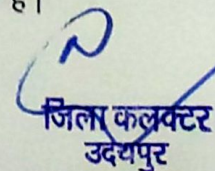 है।
जिला कलक्टर
उदयपुर